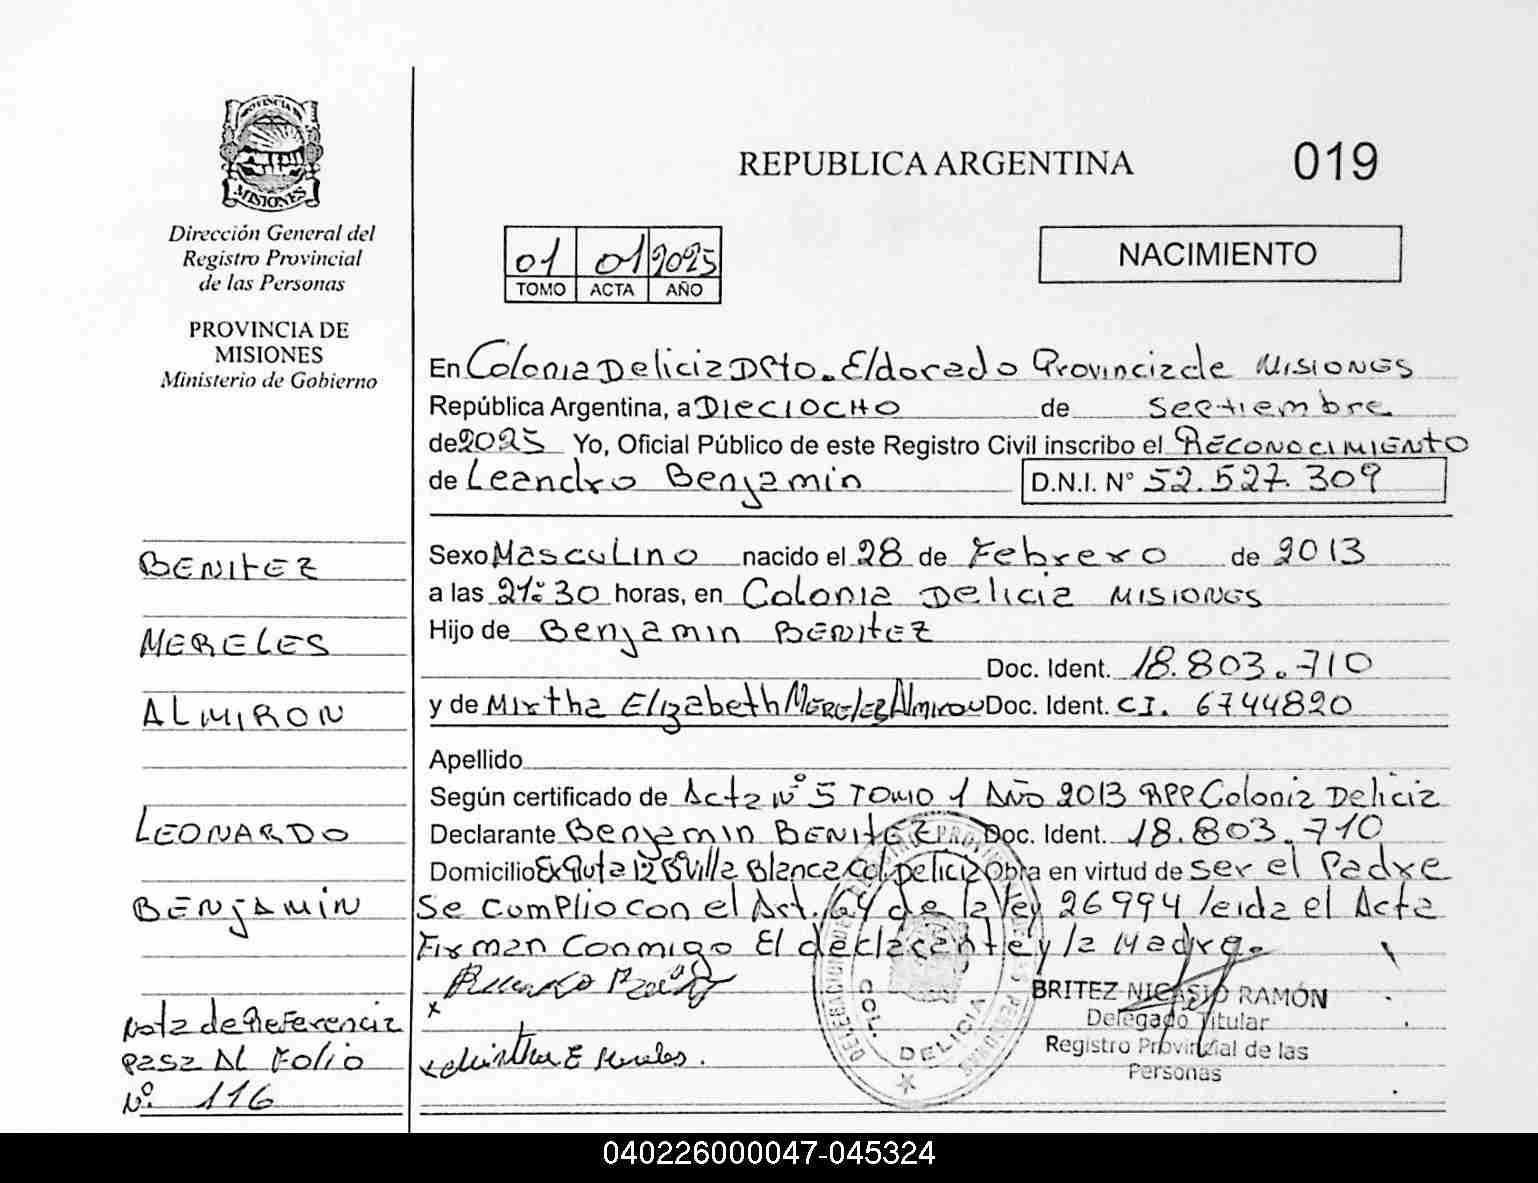 PROVINCIA DE
MISIONES
Dirección General del
Registro Provincial
de las Personas
PROVINCIA DE
MISIONES
Ministerio de Gobierno
REPUBLICA ARGENTINA
019
01 01 2025
TOMO ACTA AÑO
NACIMIENTO
En Colonia Delicia Dpto. Eldorado Provincia de MISIONES
República Argentina, a DIECIOCHO de Septiembre
de 2025 Yo, Oficial Público de este Registro Civil inscribo el RECONOCIMIENTO
de Leandro Benjamin D.N.I. N° 52.527.309
Sexo Masculino nacido el 28 de Febrero de 2013
a las 21:30 horas, en Colonia Delicia MISIONES
Hijo de Benjamin BENITEZ
Doc. Ident. 18.803.710
y de Mirtha Elizabeth MERELES Almiron Doc. Ident. CI. 6744820
Apellido
Según certificado de Acta N° 5 TOMO 1 Año 2013 RPP Colonia Delicia
Declarante Benjamin BENITEZ Doc. Ident. 18.803.710
Domicilio Ex Ruta 12 B° Villa Blanca Col. Delicia Obra en virtud de ser el Padre
Se cumplio con el Art. 64 de la ley 26994 leida el Acta
Firman conmigo El declarante y la Madre.
x
x Mirtha E Mereles.
BRITEZ NICASIO RAMÓN
Delegado Titular
Registro Provincial de las
Personas
COL. DELICIA
BENITEZ
MERELES
ALMIRON
LEONARDO
BENJAMIN
Nota de Referencia
pasa AL Folio
N°. 116
040226000047-045324